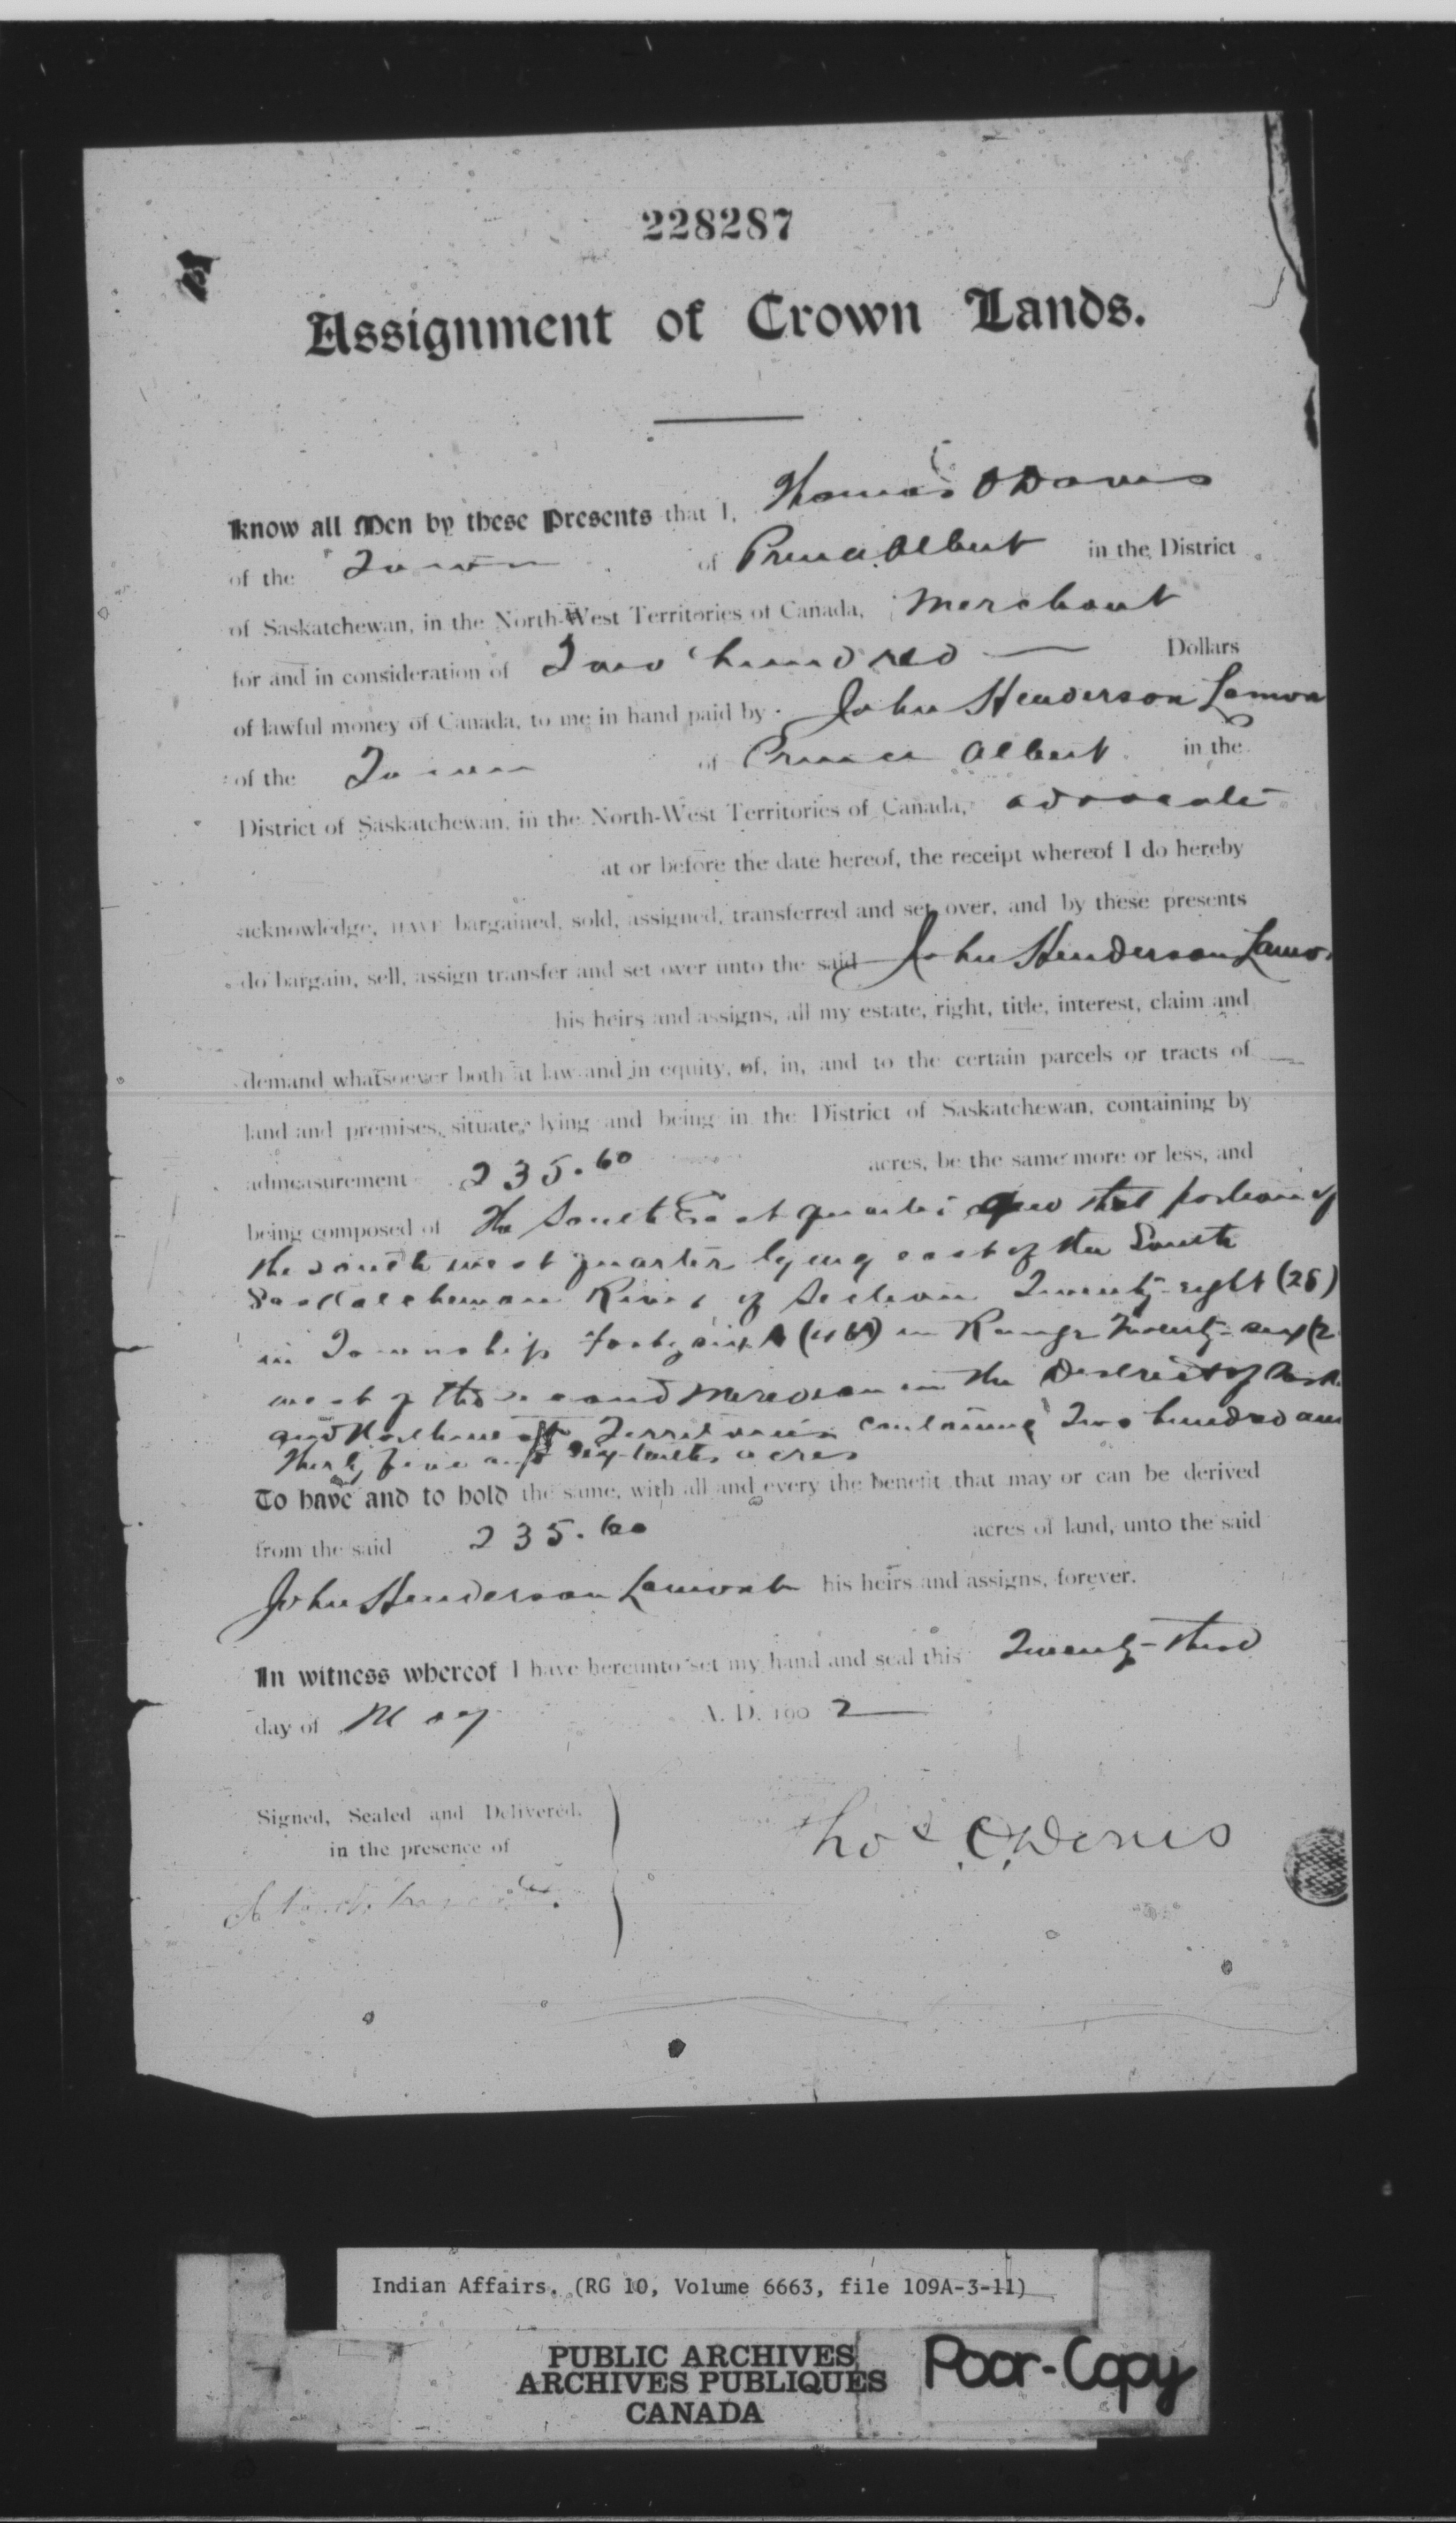 228287
Assignment of Crown Lands.
Know all Men by these Presents that I, Thomas O Davis
of the Town of Prince Albert in the District
of Saskatchewan, in the North-West Territories of Canada, Merchant
for and in consideration of Two hundred — Dollars
of lawful money of Canada, to me in hand paid by John Henderson Lamon
of the Town of Prince Albert in the
District of Saskatchewan, in the North-West Territories of Canada, advocate
at or before the date hereof, the receipt whereof I do hereby
acknowledge, HAVE bargained, sold, assigned, transferred and set over, and by these presents
do bargain, sell, assign transfer and set over unto the said John Henderson Lamo
his heirs and assigns, all my estate, right, title, interest, claim and
demand whatsoever both at law and in equity, of, in, and to the certain parcels or tracts of
land and premises, situate, lying and being in the District of Saskatchewan, containing by
admeasurement 235.60 acres, be the same more or less, and
being composed of The South East quarter and that portion of
the south west quarter lying east of the South
Saskatchewan River of Section Twenty-eight (28)
in Township forty six A (46A) in Range Twenty-six (2
west of the second Meridian in the District of Sask
and Northwest Territories containing Two hundred and
thirty five and six-tenths acres
To have and to hold the same, with all and every the benefit that may or can be derived
from the said 235.60 acres of land, unto the said
John Henderson Lamont his heirs and assigns, forever.
In witness whereof I have hereunto set my hand and seal this Twenty-third
day of May A. D. 1902
Signed, Sealed and Delivered,
in the presence of
Thos O Davis
Indian Affairs. (RG 10, Volume 6663, file 109A-3-11)
PUBLIC ARCHIVES
ARCHIVES PUBLIQUES
CANADA
Poor-Copy